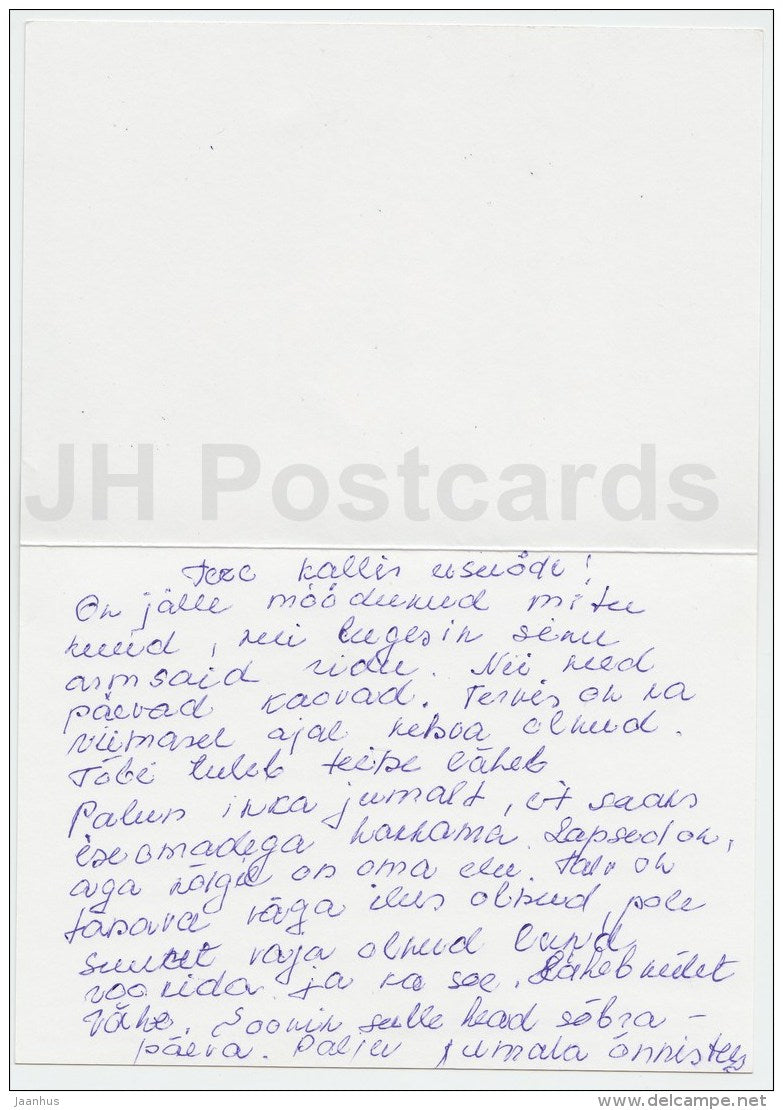 JH Postcards
Tere kallis usuõde!
On jälle möödunud mitu
kuud, kui lugesin sinu
armsaid ridu. Nii need
päevad kaovad. Tervis on ka
viimasel ajal kehva olnud.
Tõbi tuleb teise läheb
Palun ikka jumalt, et saaks
ise omadega hakkama. Lapsed on,
aga kõigil on oma elu. Talv on
tänavu väga ilus olnud, pole
suurt vaja olnud lund
rookida ja ka soe. Läheb kütet
vähe. Soovin sulle head sõbra-
päeva. Palju jumala õnnistus
Jaanhus
www.delcampe.net